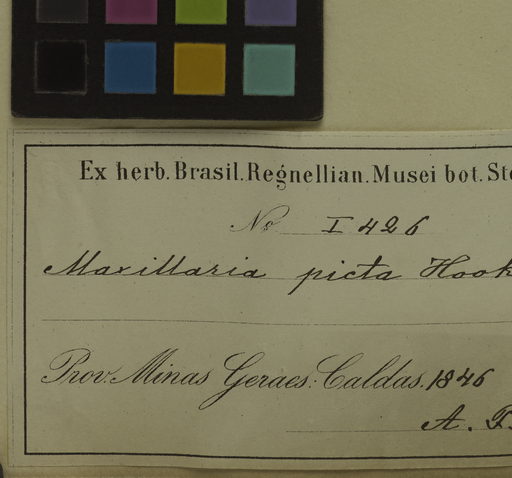 Ex herb. Brasil. Regnellian. Musei bot. Sto
No I 426
Maxillaria picta Hook
Prov. Minas Geraes: Caldas. 1846
A. F.